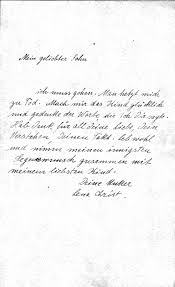 Mein geliebter Sohn
ich muss gehen. Man hetzt mich
zu Tod. Mach mir das Kind glücklich
und gedenke der Worte die ich Dir sagte.
Hab Dank für all Deine Liebe, Dein
Verstehen, Deinen Takt. Leb wohl
und nimm meinen innigsten
Segenswunsch zusammen mit
meinem liebsten Kind.
Deine Mutter
Lena Christ